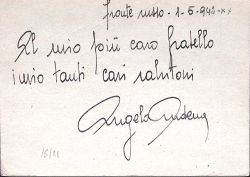 fronte russo. 1-6-942-xx
Al mio più caro fratello
invio tanti cari salutoni
Angelo